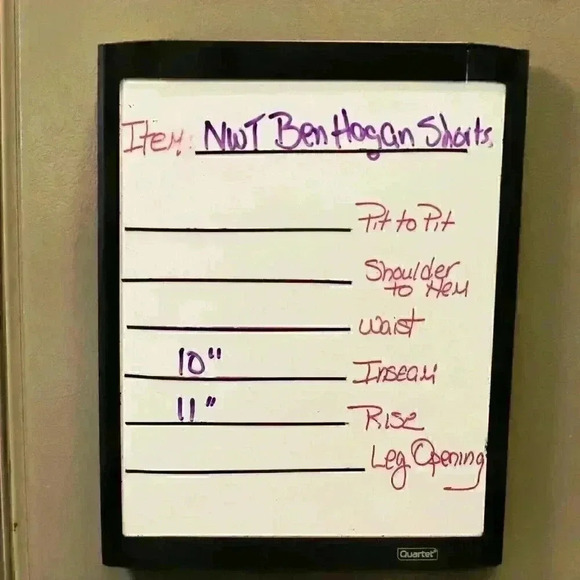 Item: NWT Ben Hogan Shorts
Pit to Pit
Shoulder
to Hem
Waist
10" Inseam
11" Rise
Leg Opening
Quartet